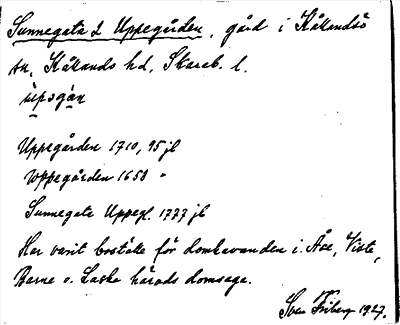 Sunnegata 2 Uppegården, gård i Kållandsö
sn, Kållands hd, Skarab. l.
ùpəgàn
Uppegården 1710, 95 jb
Uppegården 1658 "
Sunnegata Uppeg. 1777 jb
Har varit boställe för domhavanden i Åse, Viste,
Barne o. Laske härads domsaga.
Sven Friberg 1927.